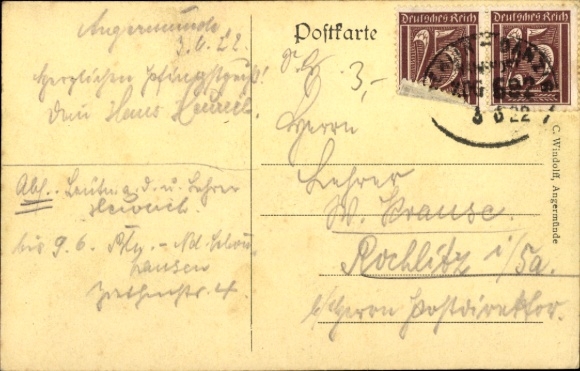 Angermünde
3.6.22.
Herzlichen Pfingstgruß!
Dein Hans Heinrich.
Abs.: Leutn. a. d. u. Lehrer
Heinrich.
bis 9.6. Bln.-Nd. Schön-
hausen
4
Postkarte
3,-
Deutsches Reich
25
Deutsches Reich
25
ZUG 692
3 6 22
Herrn
Lehrer
W. Krause.
Rochlitz i/Sa.
b/Herrn Postdirektor.
C. Windolff, Angermünde